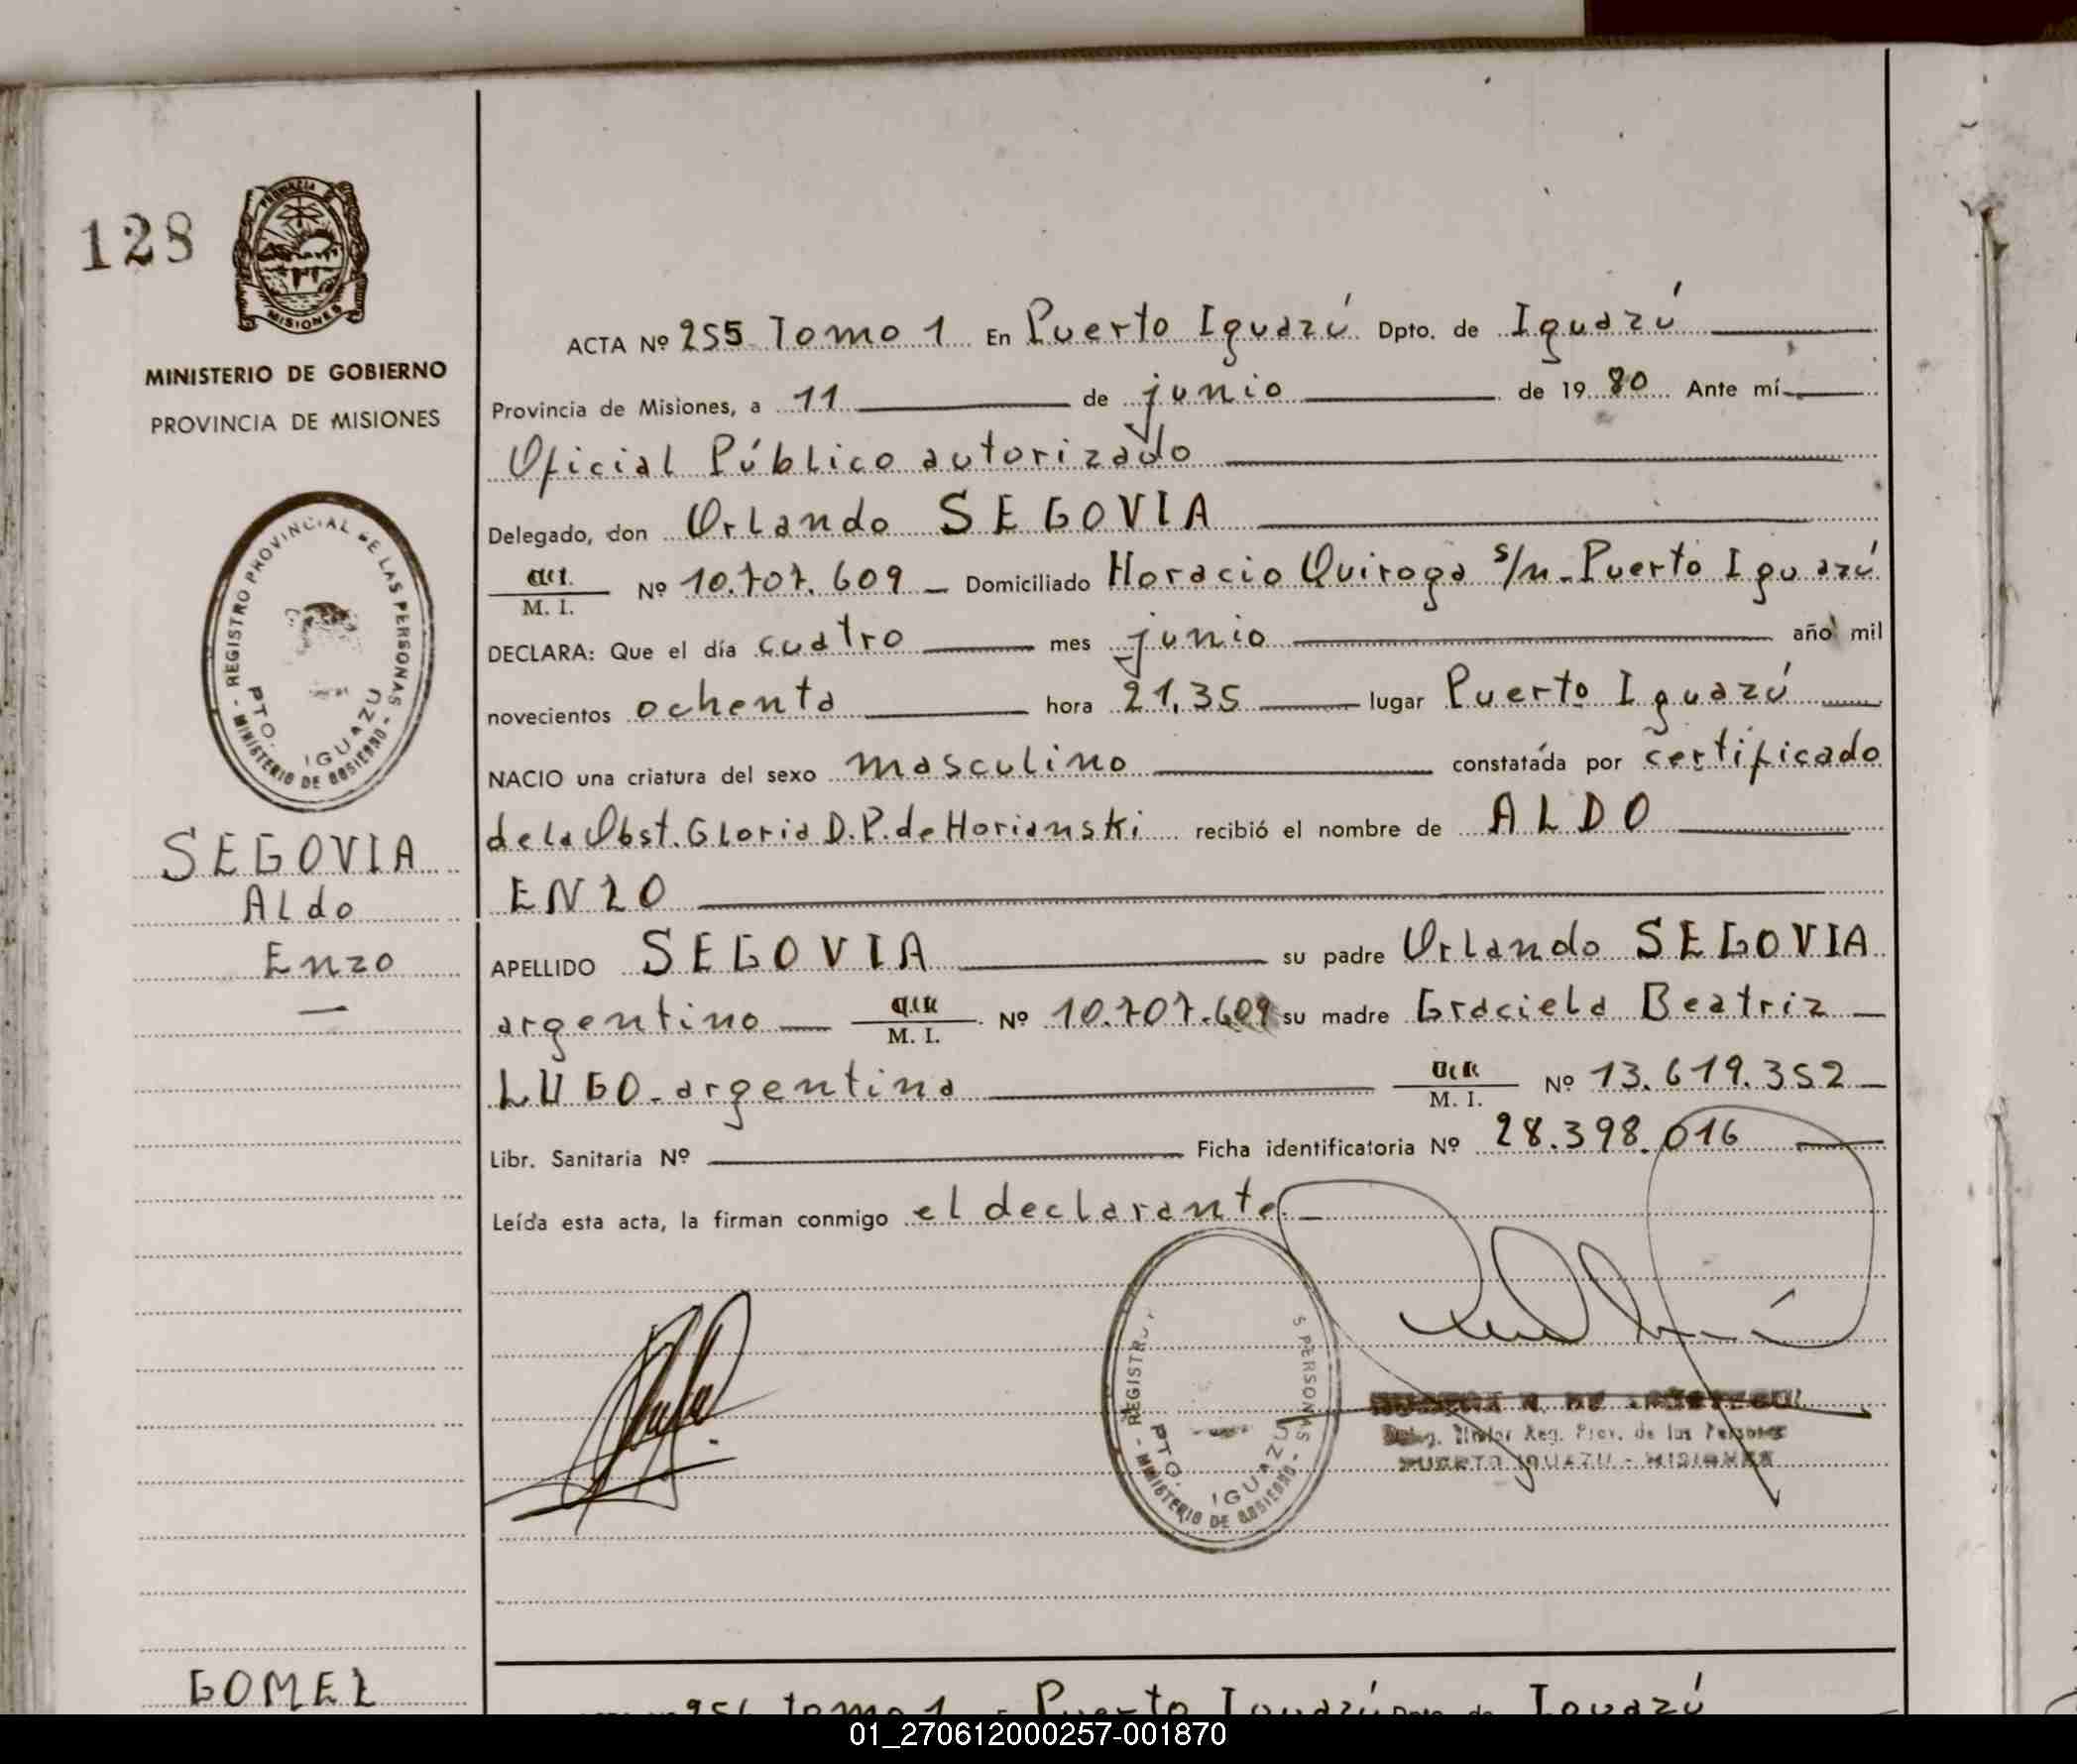 128
PROVINCIA DE
MISIONES
MINISTERIO DE GOBIERNO
PROVINCIA DE MISIONES
REGISTRO PROVINCIAL DE LAS PERSONAS
PTO. IGUAZU
- MINISTERIO DE GOBIERNO -
SEGOVIA
Aldo
Enzo
—
GOMEZ
ACTA Nº 255 Tomo 1 En Puerto Iguazú Dpto. de Iguazú
Provincia de Misiones, a 11 de junio de 1980 Ante mí
Oficial Público autorizado
Delegado, don Orlando SEGOVIA
M. I. Nº 10.707.609 - Domiciliado Horacio Quiroga s/n. Puerto Iguazú
DECLARA: Que el día cuatro mes junio año mil
novecientos ochenta hora 21,35 lugar Puerto Iguazú
NACIO una criatura del sexo masculino constatada por certificado
de la Obst. Gloria D.P. de Horianski recibió el nombre de ALDO
ENZO
APELLIDO SEGOVIA su padre Orlando SEGOVIA
argentino — M. I. Nº 10.707.609 su madre Graciela Beatriz
LUGO - argentina M. I. Nº 13.619.352
Libr. Sanitaria Nº Ficha identificatoria Nº 28.398.016
Leída esta acta, la firman conmigo el declarante. -
- REGISTRO S PERSONAS -
PTO. IGUAZU
MINISTERIO DE GOBIERNO
Reg. Prov. de las Personas
PUERTO IGUAZU - MISIONES
Tomo 1 Puerto Iguazú Dpto. de Iguazú
01_270612000257-001870